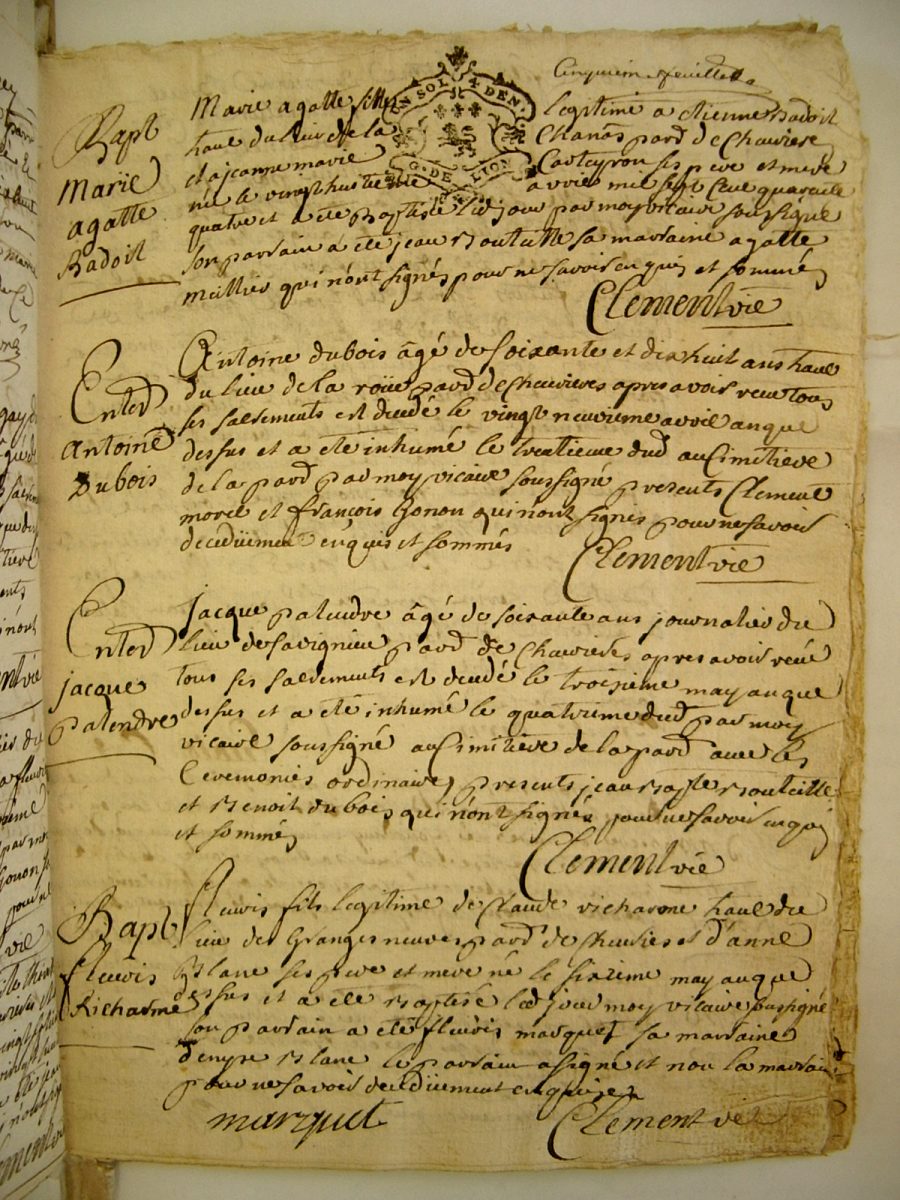 Cinquiem feuillet
Bapt
Marie
agatte
Badoil
Marie agatte fille legitime a etienne Badoil
haut du lieu de la Chanas parod de Chevriere
et a jeanne marie Casteyron ses pere et mere
née le vingt huitieme avril mil sept cent quarante
quatre et a été Baptisée led jour par moy vicaire soussigné
son parrain a été jean Boutatte sa marraine agatte
meillier qui n'ont signés pour ne savoir enquis et sommés
Clement vic
UN SOL 4 DEN.
G. DE LION
Enterd
Antoine
Dubois
Antoine dubois âgé de soixante et dix huit ans haut
du lieu de la roüe parod de Chevrieres apres avoir reçu tous
ses sacrements est decedé le vingt neuvieme avril an que
dessus et a été inhumé le trentieme dud au Cimitiere
de la parod par moy vicaire soussigné presents Clement
morel et françois Gonon qui n'ont signés pour ne savoir
deceduement enquis et sommés
Clement vic
Enterd
jacque
palendre
jacque palendre âgé de soixante ans journalier du
lieu de savignieu parod de Chevrieres apres avoir reçu
tous ses sacrements est decedé le troisieme may an que
dessus et a été inhumé le quatrieme dud par moy
vicaire soussigné au Cimitiere de la parod avec les
Ceremonies ordinaires presents jean Bapte Bouteille
et Benoit dubois qui n'ont signés pour ne savoir enquis
et sommés
Clement vic
Bapt
fleuris
Richarme
fleuris fils legitime de Claude richarme haut du
lieu des Granges neuves parod de Chevries et d'anne
Blanc ses pere et mere né le sixieme may an que
dessus et a été Baptisé led jour moy vicaire soussigné
son parrain a été fleuris marquet sa marraine
denyse Blanc le parrain a signé et non la marraine
pour ne savoir de ce düement enquise
marquet
Clement vic